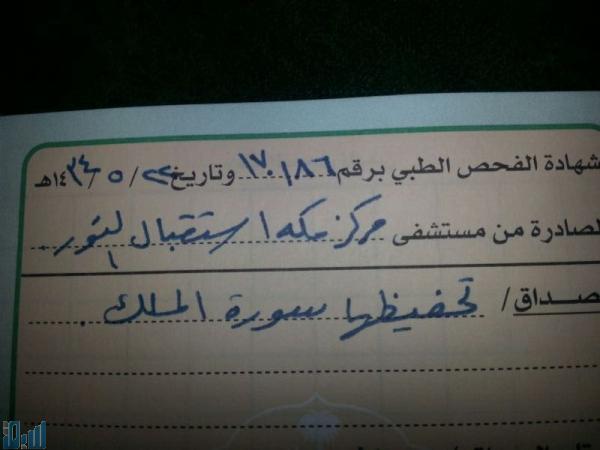 شهادة الفحص الطبي برقم ١٧٠١٨٦ وتاريخ ٢٢/٥/١٤٣٤هـ
لصادرة من مستشفى مركز مكه استقبال النور
صداق/ تحفيظها سورة الملك .
سبق